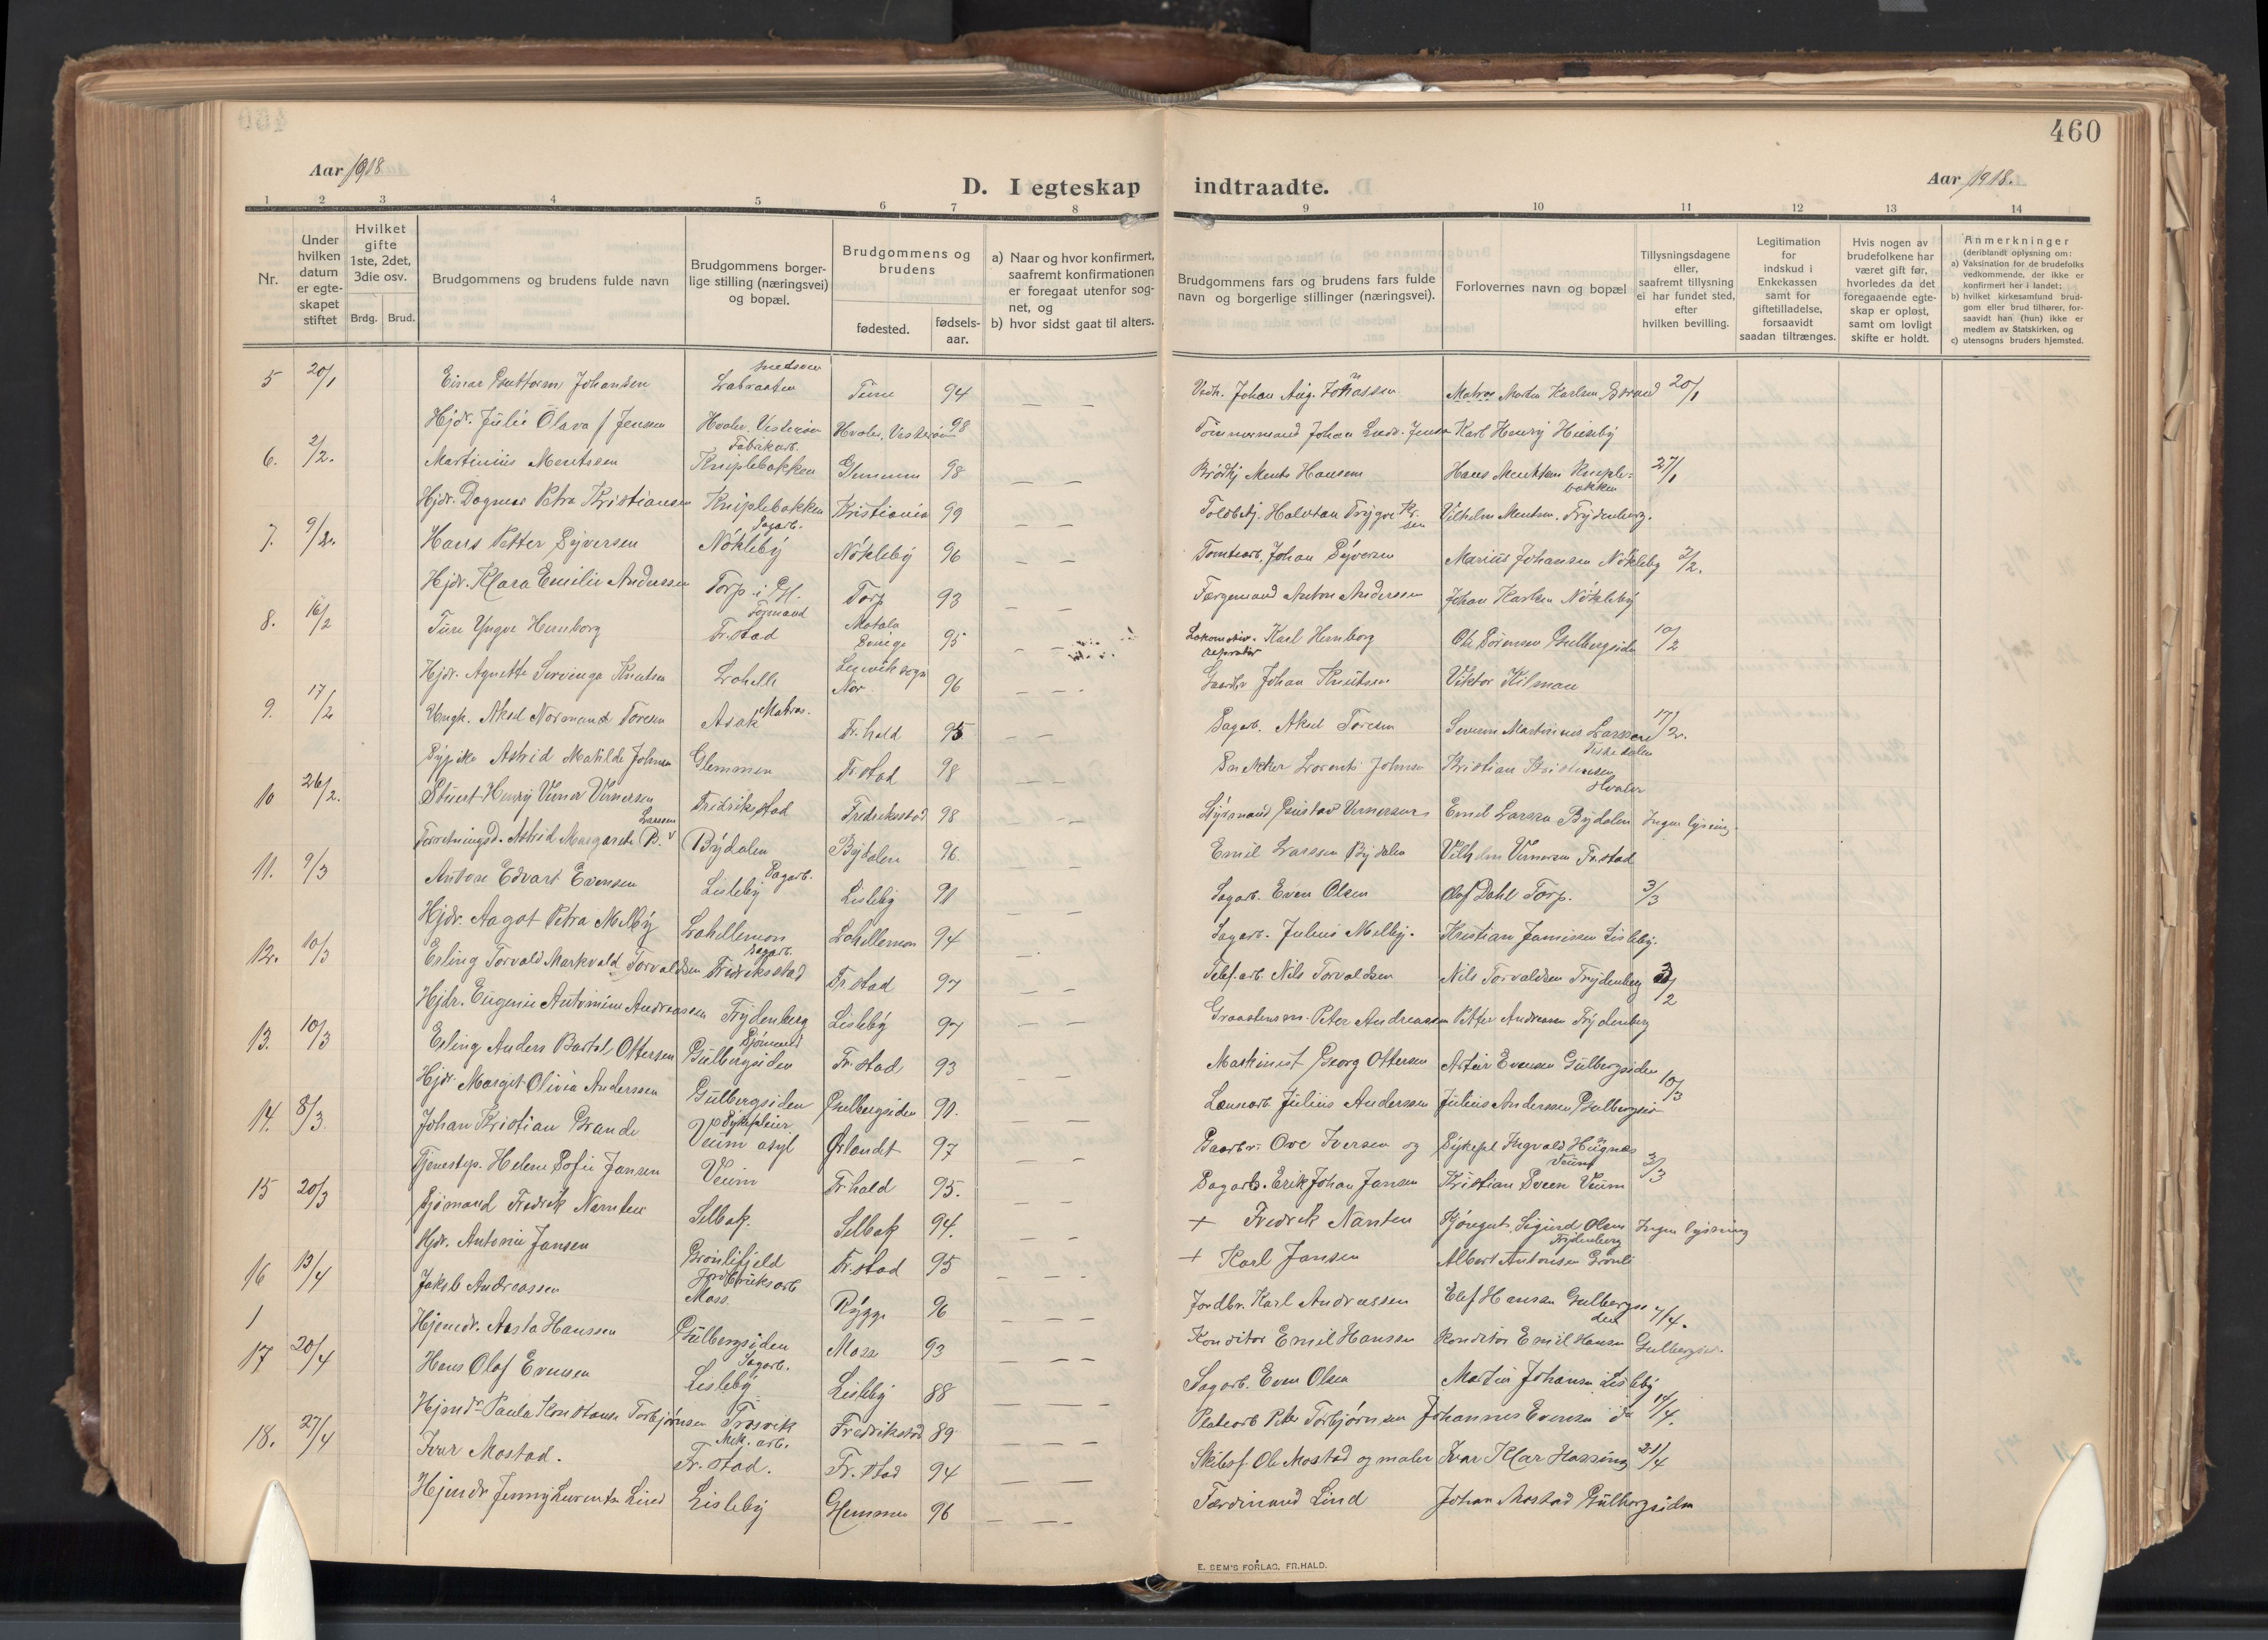 460
Aar 1918
Aar 1918.
D. I egteskap indtraadte.
1 2 3 4 5 6 7 8 9 10 11 12 13 14
Nr.
Under hvilken datum er egte-skapet stiftet
Hvilket gifte 1ste, 2det, 3die osv.
Brdg. Brud.
Brudgommens og brudens fulde navn
Brudgommens borger-lige stilling (næringsvei) og bopæl.
Brudgommens og brudens
fødested.
fødsels-aar.
a) Naar og hvor konfirmert, saafremt konfirmationen er foregaat utenfor sog-net, og
b) hvor sidst gaat til alters.
Brudgommens fars og brudens fars fulde navn og borgerlige stillinger (næringsvei).
Forlovernes navn og bopæl
Tillysningsdagene eller, saafremt tillysning ei har fundet sted, efter hvilken bevilling.
Legitimation for indskud i Enkekassen samt for giftetilladelse, forsaavidt saadan tiltrænges.
Hvis nogen av brudefolkene har været gift før, hvorledes da det foregaaende egte-skap er opløst, samt om lovligt skifte er holdt.
Anmerkninger
(deriblandt oplysning om:
a) Vaksination for de brudefolks vedkommende, der ikke er konfirmert her i landet;
b) hvilket kirkesamfund brud-gom eller brud tilhører, for-saavidt han (hun) ikke er medlem av Statskirken, og
c) utensogns bruders hjemsted.
5 20/1 Einar Guttorm Johansen Labraaten Tune 94 Johan Aug. Johassen Matros Martin Karlsen 20/1
Hjdr. Julie Olava Jensen Hvaler, Vesterøen Hvaler, Vesterøen 98 Tømmermand Johan Ludv. Jensen Karl Henry Huseby
6. 2/2. Martinius Mentssen Fabrikarb. Kniplebakken Glemmen 98 Ments Hansen Hans Mentssen Kniplebakken 27/1
Hjdr. Dagmar Petra Kristiansen Kniplebakken Kristiania 99 Toldbetj. Halvtan Trygve Kr.sen Vilhelm Mentsen. Frydenberg.
7. 9/2. Hans Petter Syversen Sagarb. Nøkleby Nøkleby 96 Tomtearb. Johan Syversen Marius Johansen Nøkleby 3/2.
Hjdr. Klara Emilie Anderssen Torp i Gl. Torp 93 Færgemand Anton Anderssen Johan Karlsen Nøkleby
8. 16/2 Ture Yngve Hernborg Formand Fr.stad Motala Sverige 95 Lokomotiv-reparatør Karl Hernborg Ole Sørensen Gulbergsiden 10/2
Hjdr. Agnette Severinga Knutsen Lahelle Leirvik sogn Nor. 96 Gaardbr. Johan Knutsen Viktor Kilman
9. 17/2 Ungk. Aksel Normand Toresen Matros. Asak Fr.hald 95 Sagarb. Aksel Toresen Severin Martinius Larssen 17/2.
Sypike Astrid Matilde Johnsen Glemmen Fr.stad 98 Snekker Lorents Johnsen Kristian Kristensen Hvaler
10 26/2. Stuert Henry Verner Vernersen Fredrikstad Fredriksstad 98 Styrmand Gustav Vernersen Emil Larsen Bydalen Ingen lysning.
Forretningsd. Astrid Margarete B. Larssen Bydalen Bydalen 96. Emil Larssen Bydalen Vilhelm Vernersen Fr.stad
11. 9/3 Anton Edvart Evensen Sagarb. Lisleby Lisleby 91 Sagarb. Even Olsen Olof Dahl Torp. 3/3
Hjdr. Aagot Petra Melby Lahellemoen Lahellemoen 94 Sagarb. Julius Melby. Kristian Jamissen Lisleby.
12. 10/3 Erling Torvald Markvald Torvaldsen Sagarb. Fredriksstad Fr.stad 97 Telef.arb. Nils Torvaldsen Nils Torvaldsen Frydenberg 3/2
Hjdr. Eugenie Antonine Andreassen Frydenberg Lisleby 97 Graastensm. Peter Andreassen Petter Andreassen Frydenberg
13. 10/3 Erling Anders Bartel Ottersen Sjømand Gulbergsiden Fr.stad 93 Maskinist Georg Ottersen Artur Evensen Gulbergsiden 10/3
Hjdr. Margit Olivia Anderssen Gulbergsiden Gulbergsiden 90. Lænsearb. Julius Anderssen Julius Anderssen Gulbergsi
14. 8/3 Johan Kristian Grande Sykepleier Veum asyl Ørlandet 97 Gaardbr. Ove Iversen og Sykepl. Ingvald Hugnæs Veum 3/3
Tjenestep. Helene Sofie Jansen Veum Fr.hald 95. Sagarb. Erik Johan Jansen Kristian Sveen Veum
15 20/3 Sjømand Fredrik Narnten Selbak Selbak 94. + Fredrik Nanten Sigurd Olsen Frydenberg Ingen lysning
Hjdr. Antonie Jansen Grønlifjeld Fr.stad 95 + Karl Jansen Albert Antonsen Grønli
16 13/4 Jakob Andreassen Jordbruksarb Moss Rygge 96 Jordbr. Karl Andreassen Elef Hansen Gulbergsiden 7/4.
Hjemdr. Aasta Hanssen Gulbergsiden Moss 93 Konditor Emil Hanssen Konditor Emil Hansen Gulbergsid.
17 20/4 Hans Olaf Evensen Sagarb. Lisleby Lisleby 88 Sagarb. Even Olsen Martin Johansen Lisleby 14/4.
Hjemdr. Paula Konstanse Torbjørnsen Trosvik Fredrikstad 89 Platearb. Peter Torbjørnsen Johannes Evensen do
18. 27/4 Ivar Mostad. Mek. arb. Fr.stad. Fr.stad 94 Ole Mostad og maler Ivar Klar Hassing 21/4
Hjemdr. Jenny Laurentse Lind Lisleby Glemmen 96 Færdinand Lind Johan Mostad Gulbergsiden
E. SEM'S FORLAG, FR.HALD.